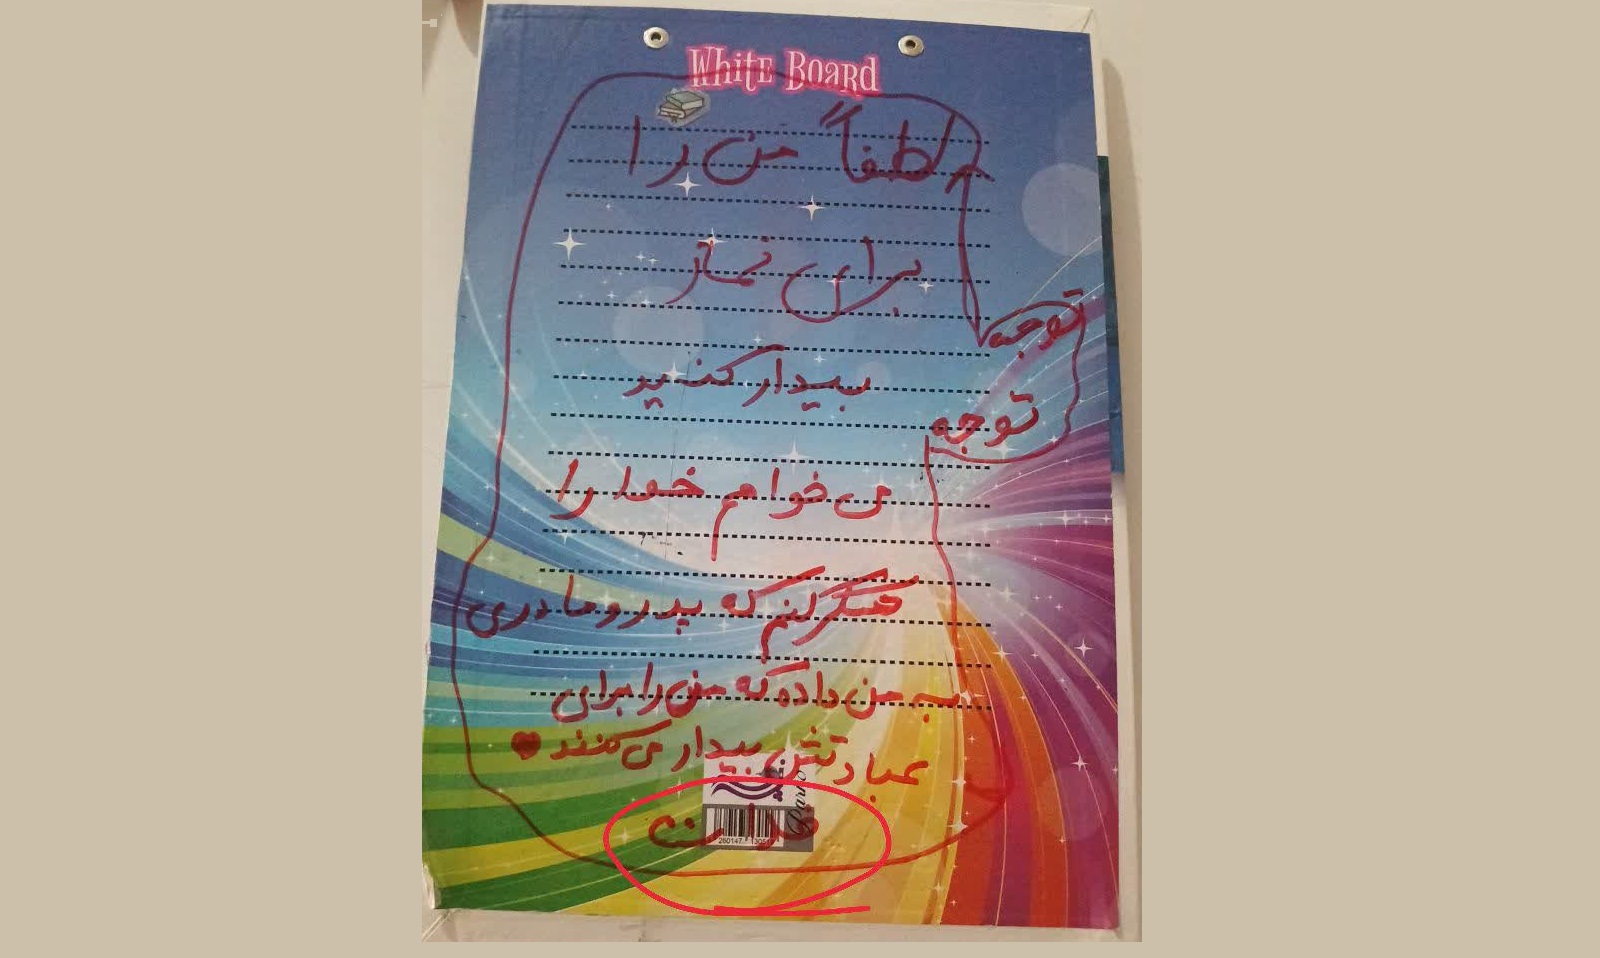 White Board
لطفاً من را
برای نماز
توجه
بیدار کنید
توجه
می خوام خدا را
شکر کنم که پدر و مادری
به من داده که من را برای
عبادتش بیدار می کنند ❤